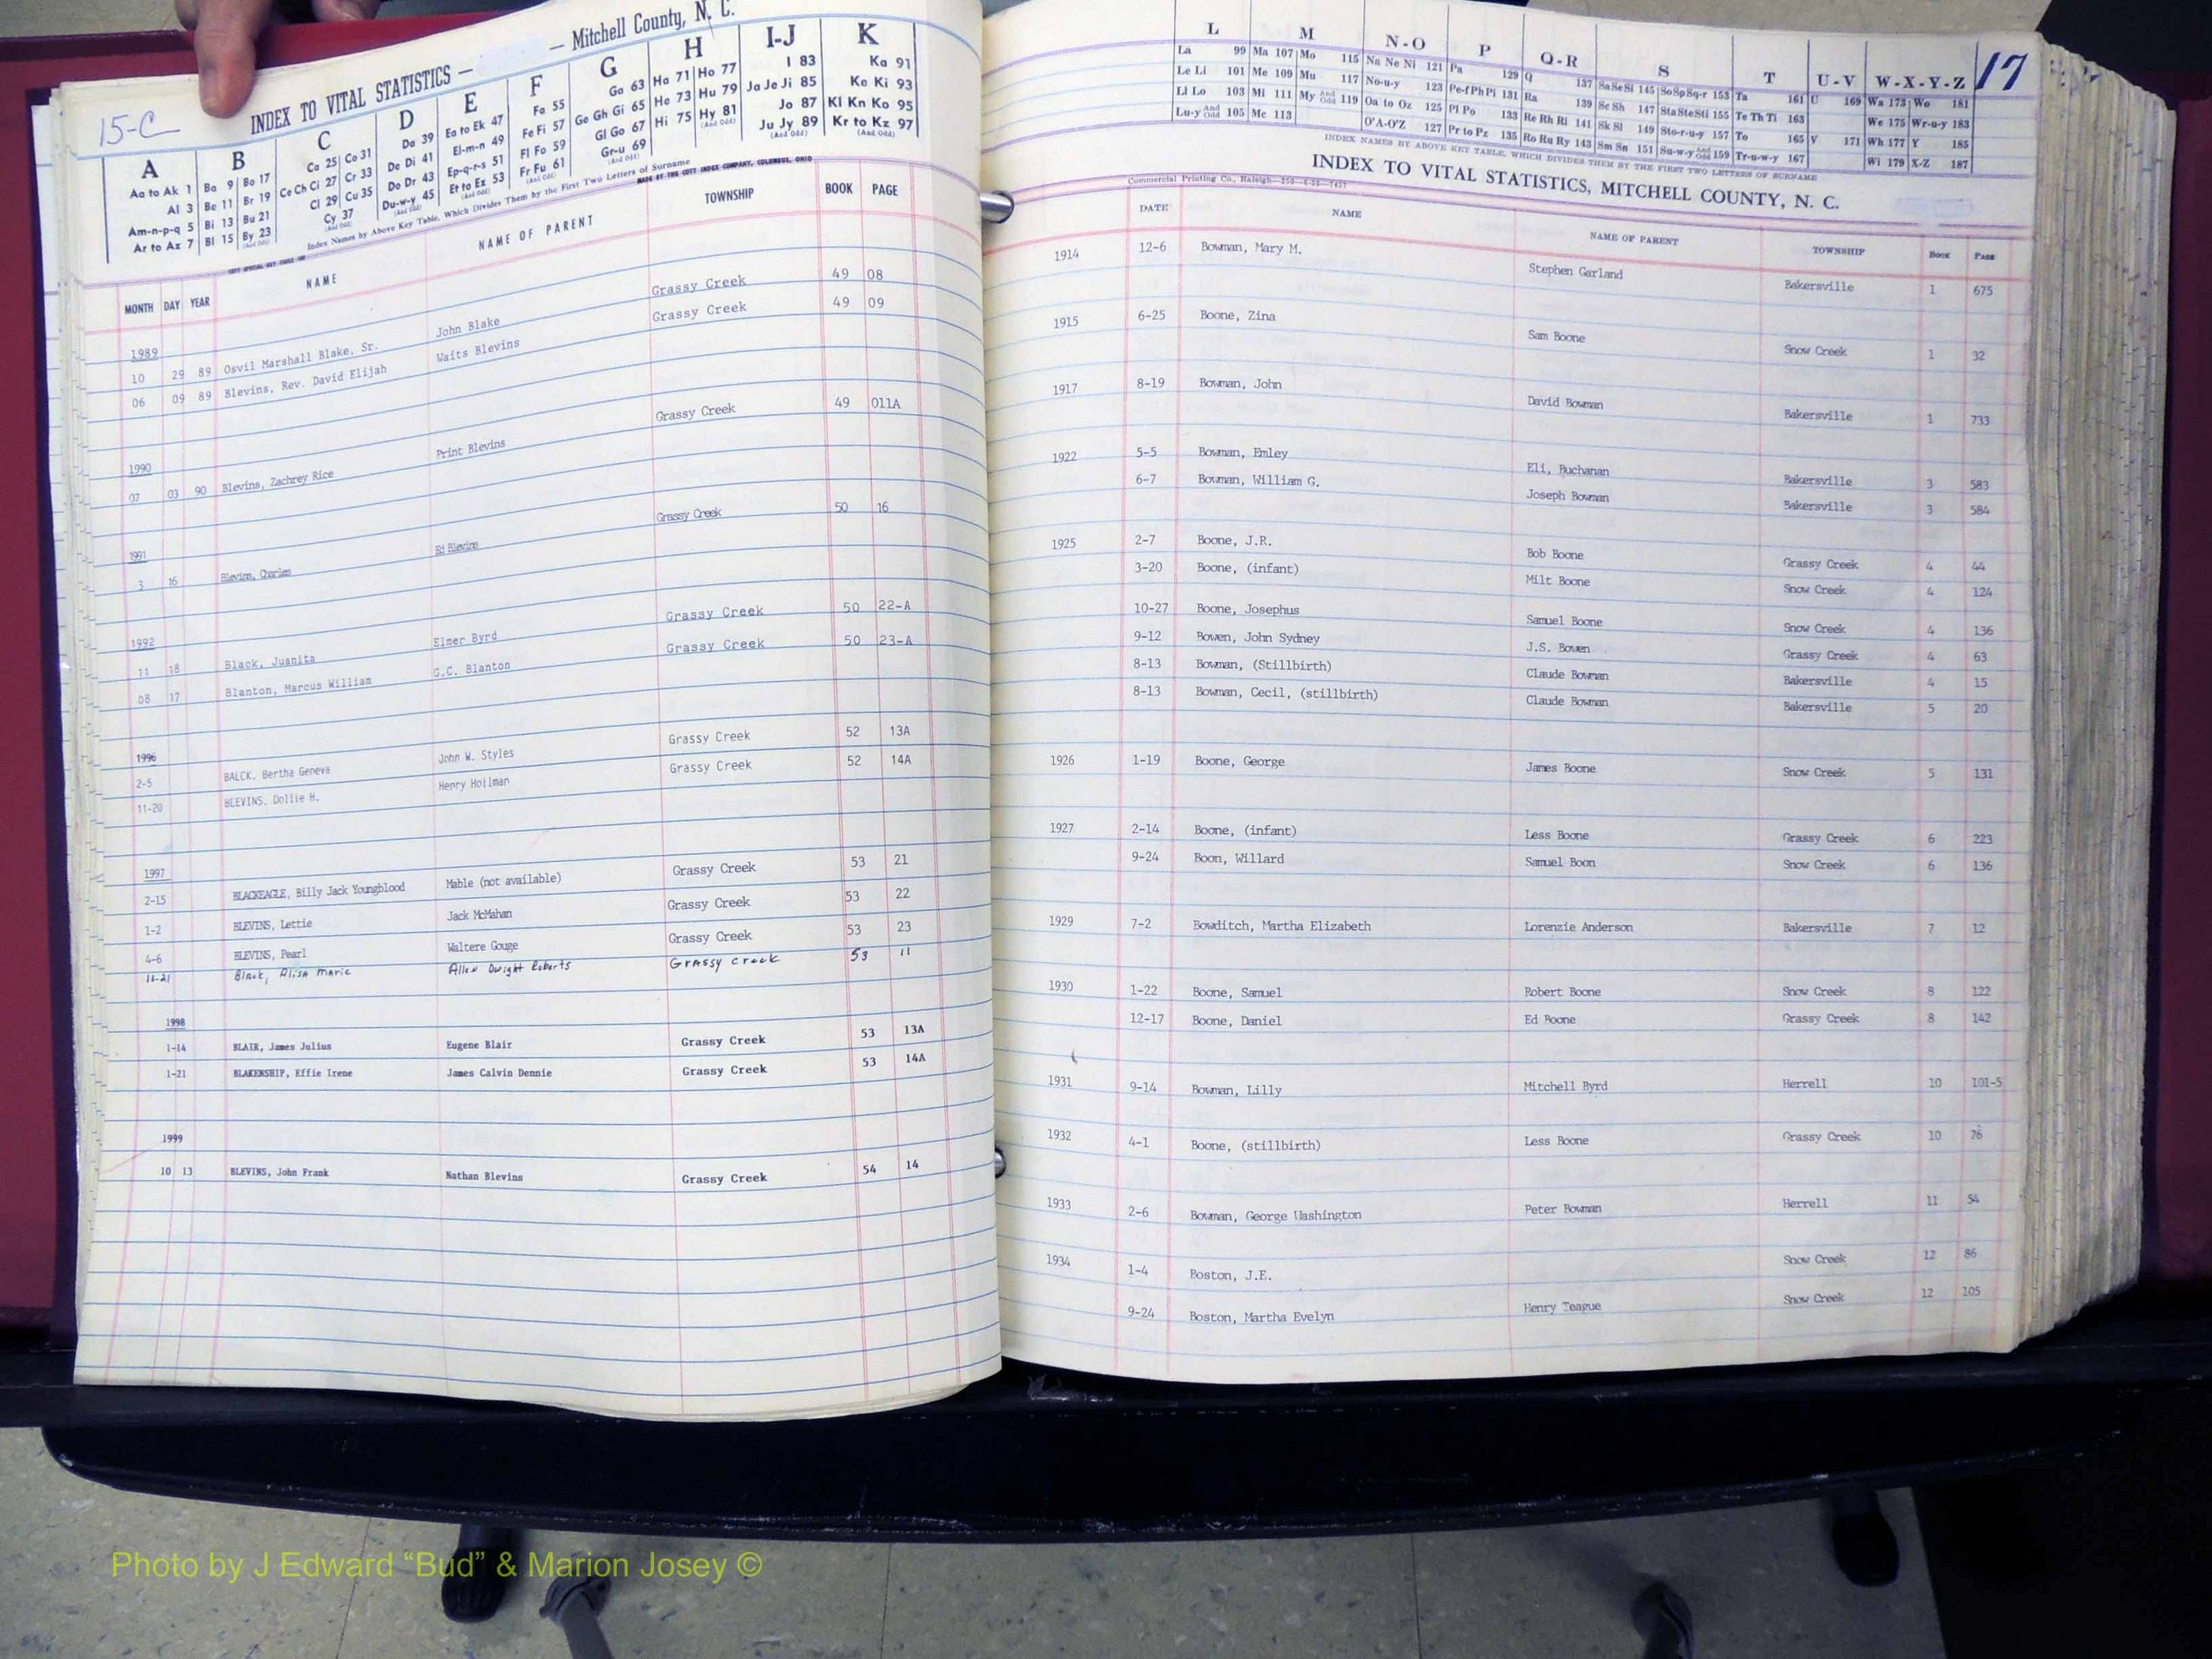 15-C
INDEX TO VITAL STATISTICS — — Mitchell County, N. C.
A B C D E F G H I-J K
Aa to Ak 1 Ba 9 Bo 17 Ca 25 Co 31 Da 39 Ea to Ek 47 Fa 55 Ga 63 Ha 71 Ho 77 I 83 Ka 91
Al 3 Be 11 Br 19 Ce Ch Ci 27 Cr 33 De Di 41 El-m-n 49 Fe Fi 57 Ge Gh Gi 65 He 73 Hu 79 Ja Je Ji 85 Ke Ki 93
Am-n-p-q 5 Bi 13 Bu 21 Cl 29 Cu 35 Do Dr 43 Ep-q-r-s 51 Fl Fo 59 Gl Go 67 Hi 75 Hy 81 (And Odd) Jo 87 Kl Kn Ko 95
Ar to Az 7 Bl 15 By 23 (And Odd) Cy 37 (And Odd) Du-w-y 45 (And Odd) Et to Ez 53 (And Odd) Fr Fu 61 (And Odd) Gr-u 69 (And Odd) Ju Jy 89 (And Odd) Kr to Kz 97 (And Odd)
Index Names by Above Key Table, Which Divides Them by the First Two Letters of Surname
MADE BY THE COTT INDEX COMPANY, COLUMBUS, OHIO
MONTH DAY YEAR NAME NAME OF PARENT TOWNSHIP BOOK PAGE
1989
10 29 89 Osvil Marshall Blake, Sr. John Blake Grassy Creek 49 08
06 09 89 Blevins, Rev. David Elijah Waits Blevins Grassy Creek 49 09
1990
07 03 90 Blevins, Zachrey Rice Print Blevins Grassy Creek 49 011A
1991
3 16 Blevins, Charles Ed Blevins Grassy Creek 50 16
1992
11 18 Black, Juanita Elmer Byrd Grassy Creek 50 22-A
08 17 Blanton, Marcus William G.C. Blanton Grassy Creek 50 23-A
1996
2-5 BALCK, Bertha Geneva John W. Styles Grassy Creek 52 13A
11-20 BLEVINS, Dollie H. Henry Hoilman Grassy Creek 52 14A
1997
2-15 BLACKEAGLE, Billy Jack Youngblood Mable (not available) Grassy Creek 53 21
1-2 BLEVINS, Lettie Jack McMahan Grassy Creek 53 22
4-6 BLEVINS, Pearl Waltere Gouge Grassy Creek 53 23
11-21 Black, Alisa Marie Allen Dwight Roberts Grassy Creek 53 11
1998
1-14 BLAIR, James Julius Eugene Blair Grassy Creek 53 13A
1-21 BLAKENSHIP, Effie Irene James Calvin Dennie Grassy Creek 53 14A
1999
10 13 BLEVINS, John Frank Nathan Blevins Grassy Creek 54 14
17
L M N-O P Q-R S T U-V W-X-Y-Z
La 99 Ma 107 Mo 115 Na Ne Ni 121 Pa 129 Q 137 Sa Se Si 145 So Sp Sq-r 153 Ta 161 U 169 Wa 173 Wo 181
Le Li 101 Me 109 Mu 117 No-u-y 123 Pe-f Ph Pi 131 Ra 139 Sc Sh 147 Sta Ste Sti 155 Te Th Ti 163 We 175 Wr-u-y 183
Ll Lo 103 Mi 111 My And Odd 119 Oa to Oz 125 Pl Po 133 Re Rh Ri 141 Sk Sl 149 Sto-r-u-y 157 To 165 V 171 Wh 177 Y 185
Lu-y And Odd 105 Mc 113 O'A-O'Z 127 Pr to Pz 135 Ro Ru Ry 143 Sm Sn 151 Su-w-y And Odd 159 Tr-u-w-y 167 Wi 179 X-Z 187
INDEX NAMES BY ABOVE KEY TABLE, WHICH DIVIDES THEM BY THE FIRST TWO LETTERS OF SURNAME
INDEX TO VITAL STATISTICS, MITCHELL COUNTY, N. C.
Commercial Printing Co., Raleigh
DATE NAME NAME OF PARENT TOWNSHIP BOOK PAGE
1914 12-6 Bowman, Mary M. Stephen Garland Bakersville 1 675
1915 6-25 Boone, Zina Sam Boone Snow Creek 1 32
1917 8-19 Bowman, John David Bowman Bakersville 1 733
1922 5-5 Bowman, Emley Eli, Buchanan Bakersville 3 583
6-7 Bowman, William G. Joseph Bowman Bakersville 3 584
1925 2-7 Boone, J.R. Bob Boone Grassy Creek 4 44
3-20 Boone, (infant) Milt Boone Snow Creek 4 124
10-27 Boone, Josephus Samuel Boone Snow Creek 4 136
9-12 Bowen, John Sydney J.S. Bowen Grassy Creek 4 63
8-13 Bowman, (Stillbirth) Claude Bowman Bakersville 4 15
8-13 Bowman, Cecil, (stillbirth) Claude Bowman Bakersville 5 20
1926 1-19 Boone, George James Boone Snow Creek 5 131
1927 2-14 Boone, (infant) Less Boone Grassy Creek 6 223
9-24 Boon, Willard Samuel Boon Snow Creek 6 136
1929 7-2 Bowditch, Martha Elizabeth Lorenzie Anderson Bakersville 7 12
1930 1-22 Boone, Samuel Robert Boone Snow Creek 8 122
12-17 Boone, Daniel Ed Boone Grassy Creek 8 142
1931 9-14 Bowman, Lilly Mitchell Byrd Herrell 10 101-5
1932 4-1 Boone, (stillbirth) Less Boone Grassy Creek 10 76
1933 2-6 Bowman, George Washington Peter Bowman Herrell 11 54
1934 1-4 Boston, J.E. Snow Creek 12 86
9-24 Boston, Martha Evelyn Henry Teague Snow Creek 12 105
Photo by J Edward “Bud” & Marion Josey ©